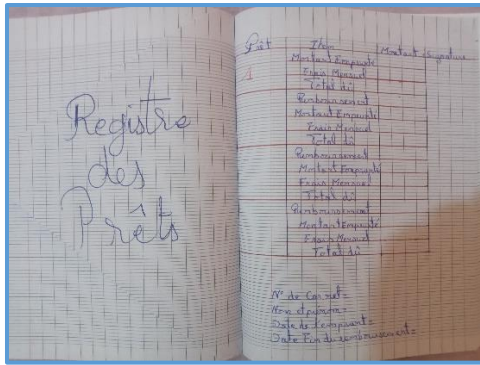 Registre
des
Prêts
Prêt Item Montant Signature
Montant Emprunté
1 Frais Mensuel
Total dû
Remboursement
Montant Emprunté
Frais Mensuel
Total dû
Remboursement
Montant Emprunté
Frais Mensuel
Total dû
Remboursement
Montant Emprunté
Frais Mensuel
Total dû
N° de Carnet=
Nom et prénom=
Date de l'emprunt=
Date Fin du remboursement=